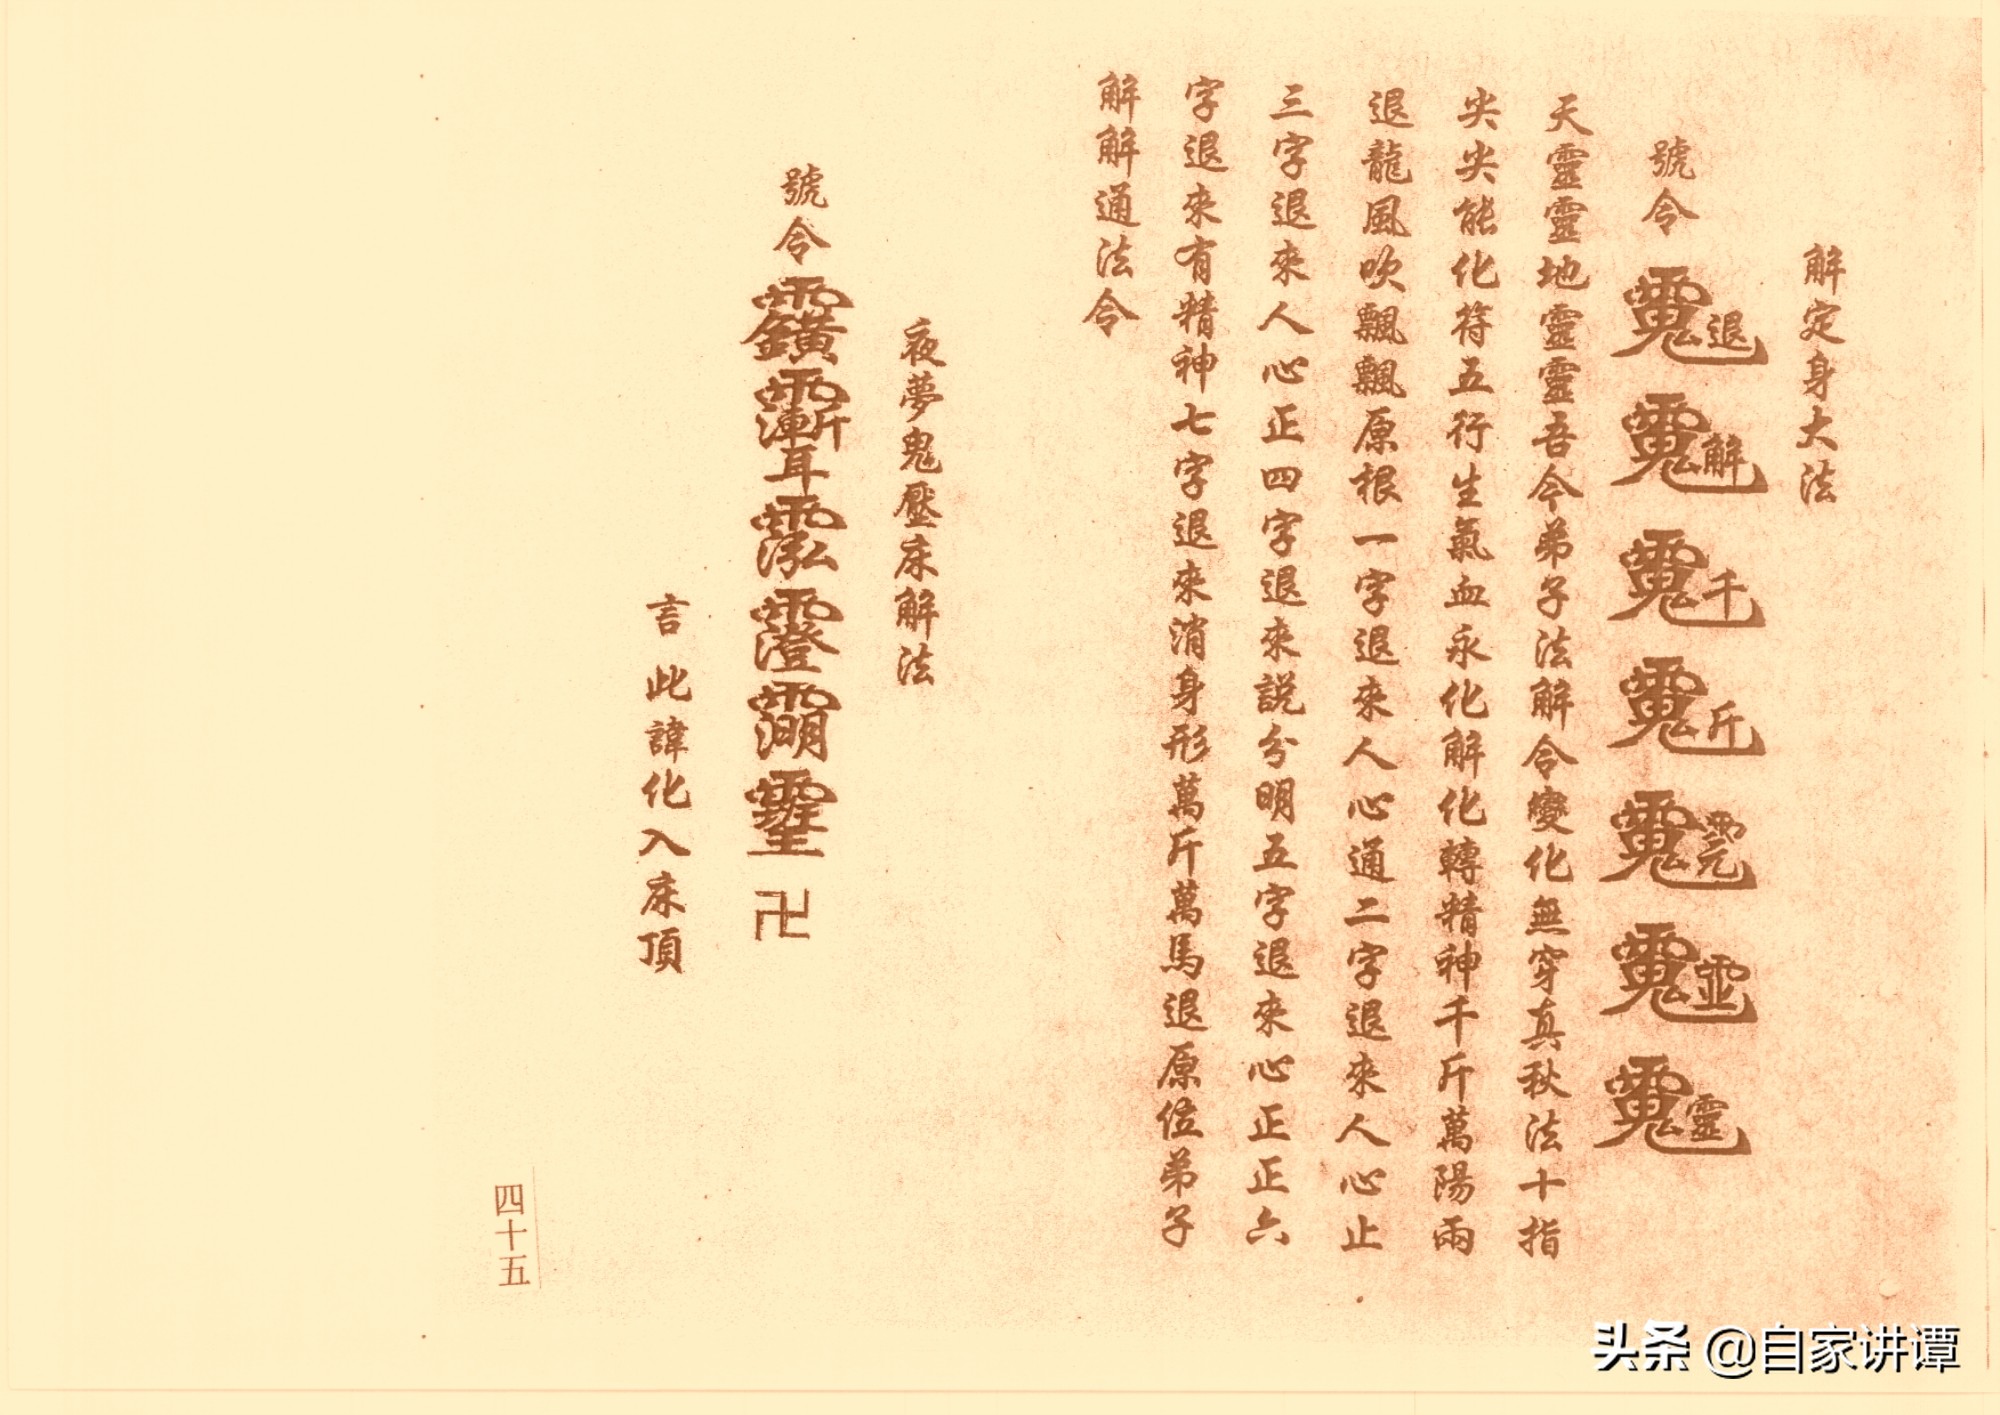 解定身大法
號令
天靈靈地靈靈吾今弟子法解令變化無穿真秋法十指
尖尖能化符五行生氣血永化解化轉精神千斤萬陽兩
退龍風吹飄飄原根一字退來人心通二字退來人心止
三字退來人心正四字退來説分明五字退來心正正六
字退來有精神七字退來消身形萬斤萬馬退原位弟子
解解通法令
夜夢鬼壓床解法
號令
卍
言此諱化入床頂
四十五
头条 @自家讲谭